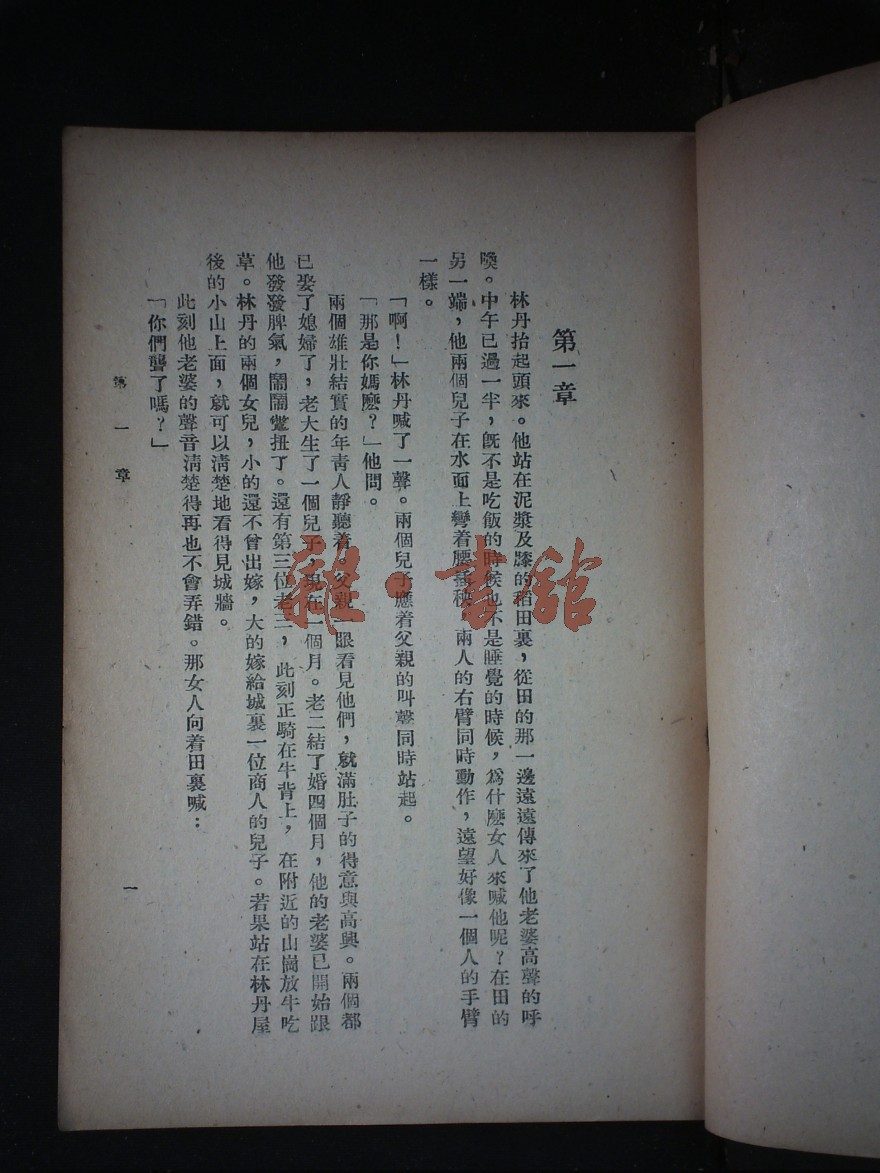 第一章
林丹抬起頭來。他站在泥漿及膝的稻田裏，從田的那一邊遠遠傳來了他老婆高聲的呼
喚。中午已過一半，旣不是吃飯的時候也不是睡覺的時候，爲什麽女人來喊他呢？在田的
另一端，他兩個兒子在水面上彎着腰插秧，兩人的右臂同時動作，遠望好像一個人的手臂
一樣。
「啊！」林丹喊了一聲。兩個兒子應着父親的叫聲同時站起。
「那是你媽麽？」他問。
兩個雄壯結實的年靑人靜聽着。父親一眼看見他們，就滿肚子的得意與高興。兩個都
已娶了媳婦了，老大生了一個兒子，現在一個月。老二結了婚四個月，他的老婆已開始跟
他發發脾氣，鬧鬧彆扭了。還有第三位老三，此刻正騎在牛背上，在附近的山崗放牛吃
草。林丹的兩個女兒，小的還不曾出嫁，大的嫁給城裏一位商人的兒子。若果站在林丹屋
後的小山上面，就可以淸楚地看得見城牆。
此刻他老婆的聲音淸楚得再也不會弄錯。那女人向着田裏喊：
「你們聾了嗎？」
第一章
一
雜·書館